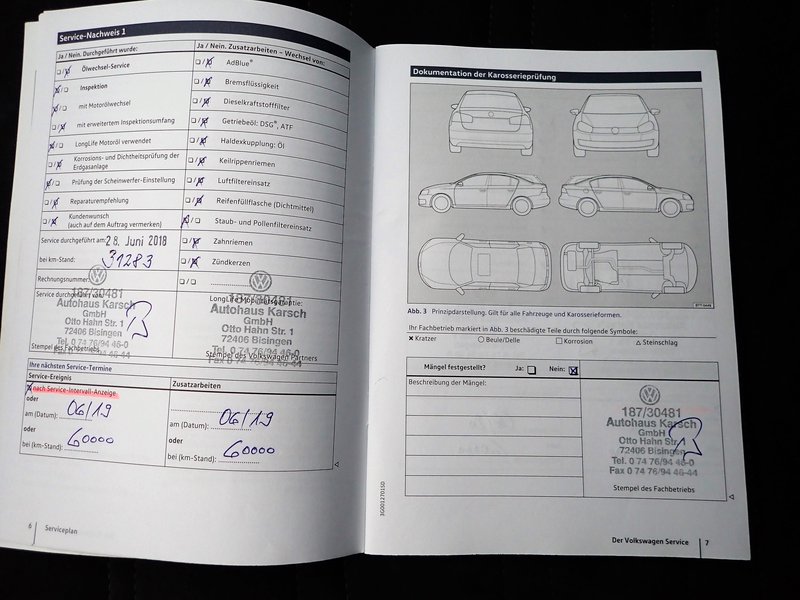 Service-Nachweis 1
Ja / Nein. Durchgeführt wurde:
Ja / Nein. Zusatzarbeiten – Wechsel von:
Ölwechsel-Service
AdBlue®
Inspektion
Bremsflüssigkeit
mit Motorölwechsel
Dieselkraftstofffilter
mit erweitertem Inspektionsumfang
Getriebeöl: DSG®, ATF
LongLife Motoröl verwendet
Haldexkupplung: Öl
Korrosions- und Dichtheitsprüfung der
Erdgasanlage
Keilrippenriemen
Prüfung der Scheinwerfer-Einstellung
Luftfiltereinsatz
Reparaturempfehlung
Reifenfüllflasche (Dichtmittel)
Kundenwunsch
(auch auf dem Auftrag vermerken)
Staub- und Pollenfiltereinsatz
Service durchgeführt am: 28. Juni 2018
Zahnriemen
bei km-Stand: 31283
Zündkerzen
Rechnungsnummer:
Service durchgeführt von:
LongLife Mobilitätsgarantie:
187/30481
Autohaus Karsch
GmbH
Otto Hahn Str. 1
72406 Bisingen
Tel. 0 74 76/94 46-0
Stempel des Fachbetriebs
187/30481
Autohaus Karsch
GmbH
Otto Hahn Str. 1
72406 Bisingen
Tel. 0 74 76/94 46-0
Stempel des Volkswagen Partners
Fax 0 74 76/94 46-44
Ihre nächsten Service-Termine
Service-Ereignis
Zusatzarbeiten
nach Service-Intervall-Anzeige
oder
am (Datum): 06/19
am (Datum): 06/19
oder
oder
bei (km-Stand): 60000
bei (km-Stand): 60000
6 Serviceplan
Dokumentation der Karosserieprüfung
Abb. 3 Prinzipdarstellung. Gilt für alle Fahrzeuge und Karosserieformen.
Ihr Fachbetrieb markiert in Abb. 3 beschädigte Teile durch folgende Symbole:
Kratzer
Beule/Delle
Korrosion
Steinschlag
Mängel festgestellt?
Ja:
Nein:
Beschreibung der Mängel:
187/30481
Autohaus Karsch
GmbH
Otto Hahn Str. 1
72406 Bisingen
Tel. 0 74 76/94 46-0
Fax 0 74 76/94 46-44
Stempel des Fachbetriebs
3G0012701SD
Der Volkswagen Service 7